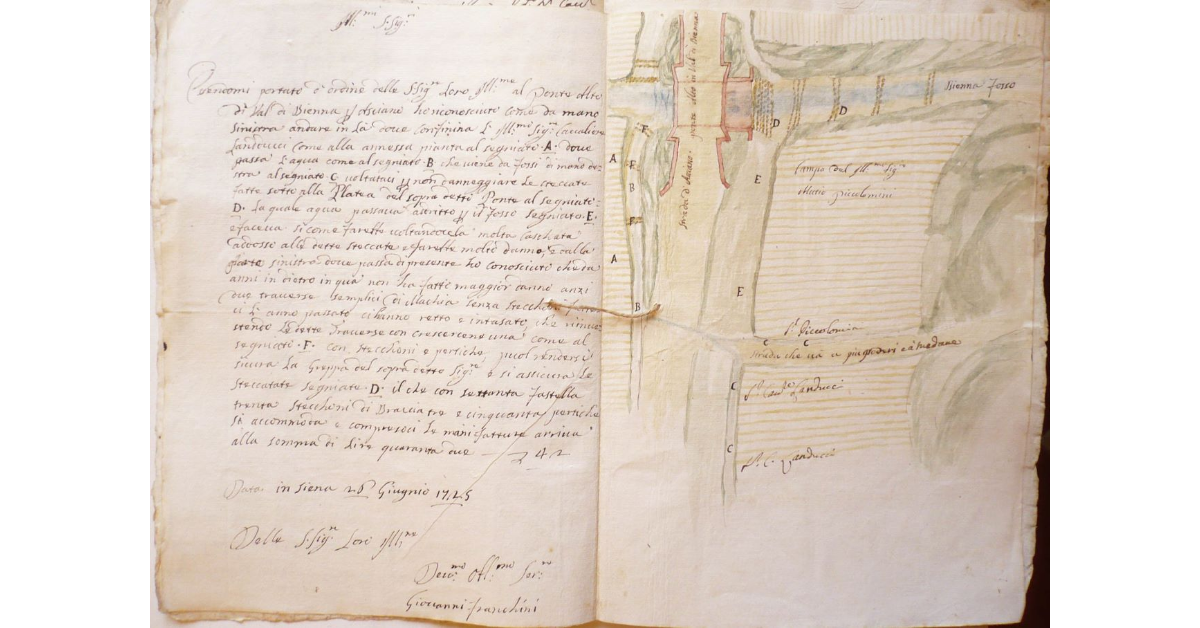 Ill:mi S:Sig:ri
Essendomi portato d'ordine delle SSig:rie Loro Ill:me al Ponte Alto
di Val di Bienna p Asciano ho riconosciuto come da mano
sinistra andare in la dove confinina L' Ill:mo Sig:re Cavaliere
Landucci come alla annessa pianta al segniato · A · dove
passa L'aqua come al segniato · B che viene da fossi di mano de
stra al segniato C voltataci p non danneggiare le steccate
fatte sotto alla Platea del sopra detto Ponte al segniato:
D · La quale aqua passava adiritto p il fosso segniato · E ·
e faceva si come farebbe voltandocela molta caschata
adosso alle dette steccate e farebbe molto danno, e dalla
parte sinistra dove passa di presente ho conosciuto che da
anni in dietro in qua non ha fatto maggior danno anzi
due traverse semplici di Machia senza stecchoni fatte
ci L' anno passato ci hanno retto e intasato, che rimet
tendo le dette traverse con crescercene una come al
segniato · F · con stecchoni e pertiche puol rendersi
sicura La Greppa del sopra detto Sig:re e si assicura le
steccatate segniate · D · il che con settanta fastella
trenta stecchoni di Braccia tre e cinquanta pertiche
si accommoda e compresoci le manifatture arriva
alla somma di lire quaranta due — 42
Data in Siena 26 Giugnio 1725
Delle S:Sig:rie Loro Ill:me
Devo:mo Obl:mo Ser:re
Giovanni Franchini
ponte alto in Val di Bienna
strada d'Asciano
Bienna Fosso
D
D
F
A
F
B
E
F
Campo del Ill:mo Sig:re
Mutio piccolomini
A
E
B
S:r Piccolomini
C C
strada che va a
C
S:r Cav:re Landucci
C
S:r C. Landucci